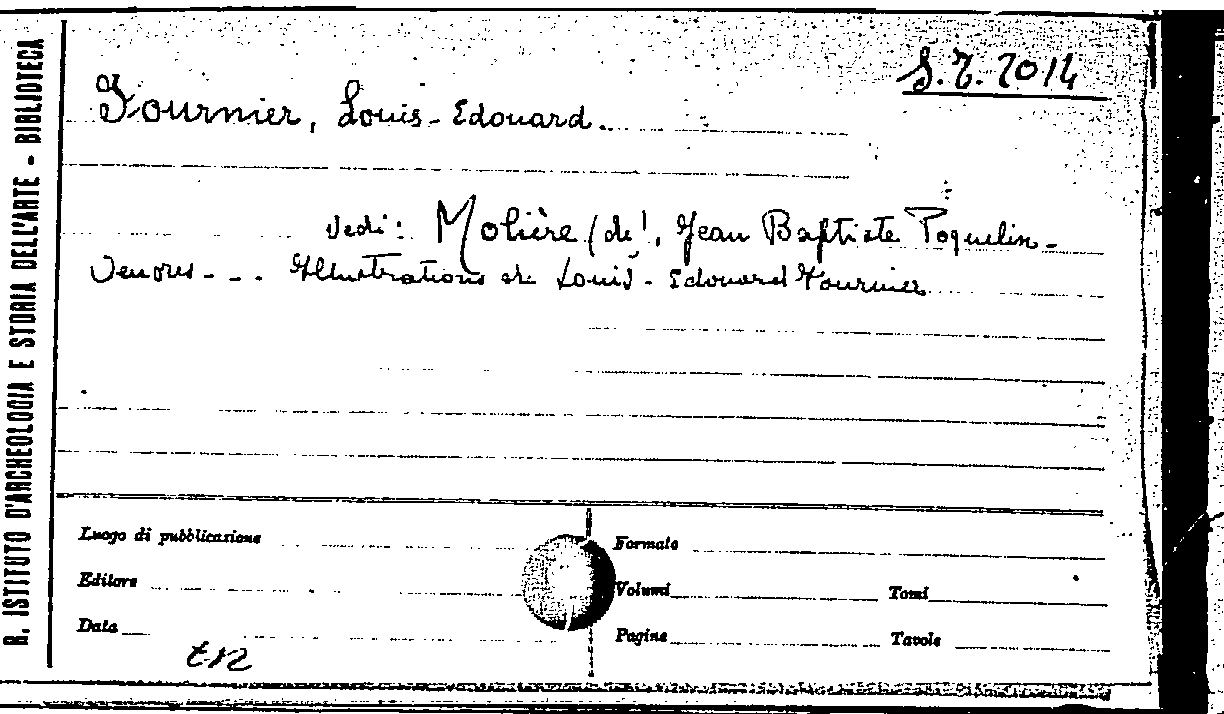 R. ISTITUTO D'ARCHEOLOGIA E STORIA DELL'ARTE - BIBLIOTECA
Fournier, Louis-Edouard.
vedi: Molière (de), Jean Baptiste Poquelin-
Illustrations de Louis-Edouard Fournier
Luogo di pubblicazione
Formato
Editore
Volumi
Tomi
Data
Pagine
Tavole